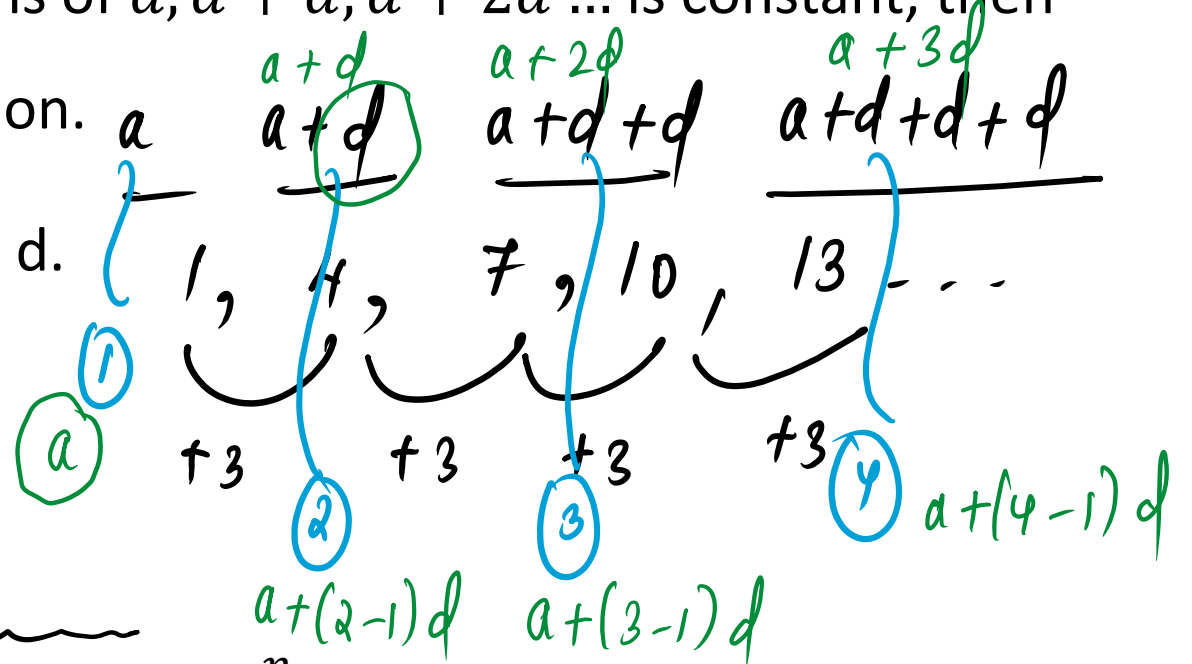 is of a, a + d, a + 2d ... is constant, then
a + d a + 2d a + 3d
on. a a + d a + d + d a + d + d + d
d. 1, 4, 7, 10, 13 - - - -
1
a +3 +3 +3 +3 4 a + (4 - 1) d
2 3
a + (2 - 1) d a + (3 - 1) d
n